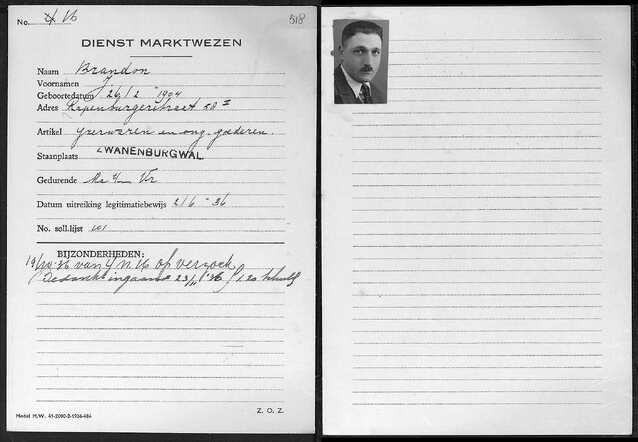 No. 4 16
518
DIENST MARKTWEZEN
Naam Brandon
Voornamen J.
Geboortedatum 26/2 - 1904
Adres Rapenburgerstraat 28 II
Artikel Yzerwaren en ong. goederen.
Staanplaats ZWANENBURGWAL
Gedurende Ma t/m Vr
Datum uitreiking legitimatiebewijs 2/6 - 36
No. soll.lijst 101
BIJZONDERHEDEN:
19/10-36 van 4 n. 16 op verzoek
Bedankt ingaand 23/11 '36 f 1.20 schuld
Model M.W. 41-2000-2-1936-484
Z. O. Z.